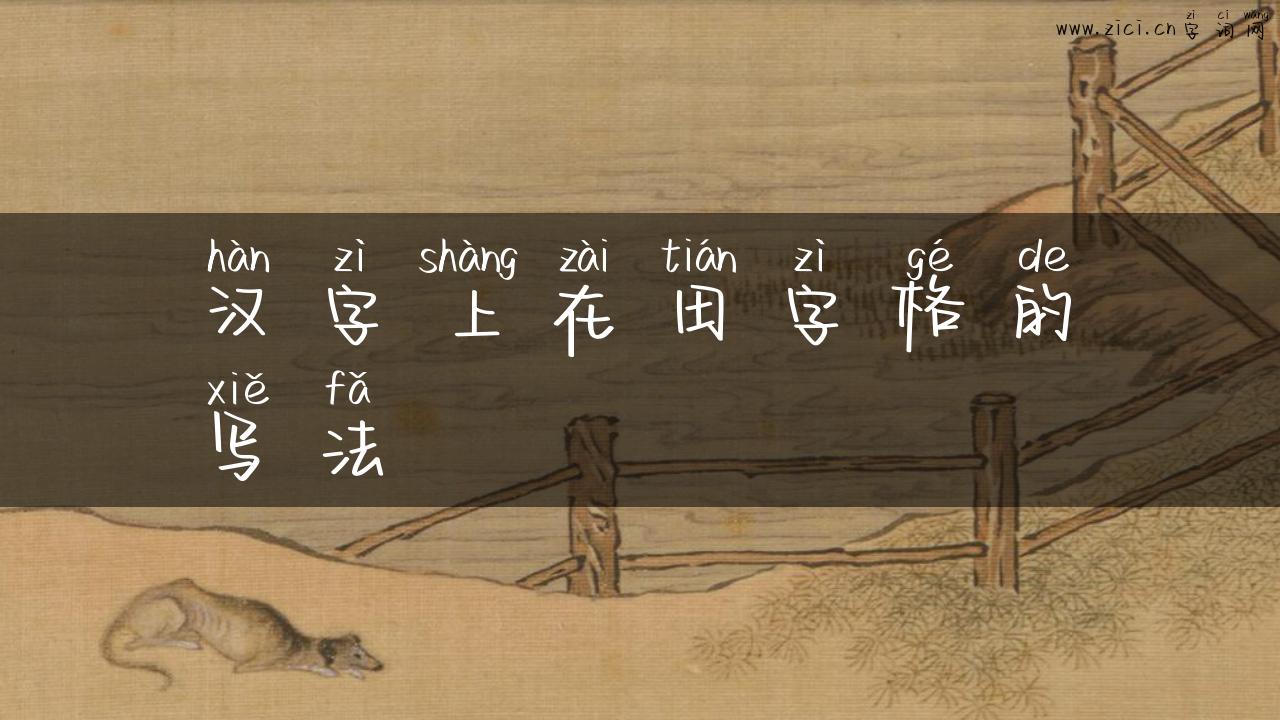 zì cí wǎng
www.zici.cn 字词网
hàn zì shàng zài tián zì gé de
汉字上在田字格的
xiě fǎ
写法